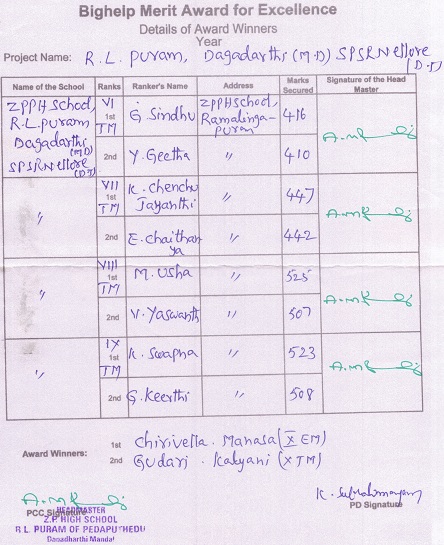 Bighelp Merit Award for Excellence
Details of Award Winners
Year
Project Name: R.L. Puram, Dagadarthi (M.D) SPSRNellore (D.T)
Name of the School Ranks Ranker's Name Address Marks Secured Signature of the Head Master
ZPPHSchool, R.L.Puram Dagadarthi (M.D) SPSRNellore (D.T) VI 1st TM G. Sindhu ZPPHSchool, Ramalinga-puram 416
2nd Y. Geetha " 410
" VII 1st TM K. Chenchu Jayanthi " 447
2nd E. Chaithanya " 442
" VIII 1st TM M. Usha " 525
2nd V. Yaswanth " 507
" IX 1st TM K. Swapna " 523
2nd G. Keerthi " 508
Award Winners: 1st Chirivella. Manasa (X EM)
2nd Gudari. Kalyani (X TM)
K. Subrahmanyam
PCC Signature PD Signature
HEADMASTER
Z.P. HIGH SCHOOL
R.L PURAM OF PEDAPUTHEDU
Dagadharthi Mandal